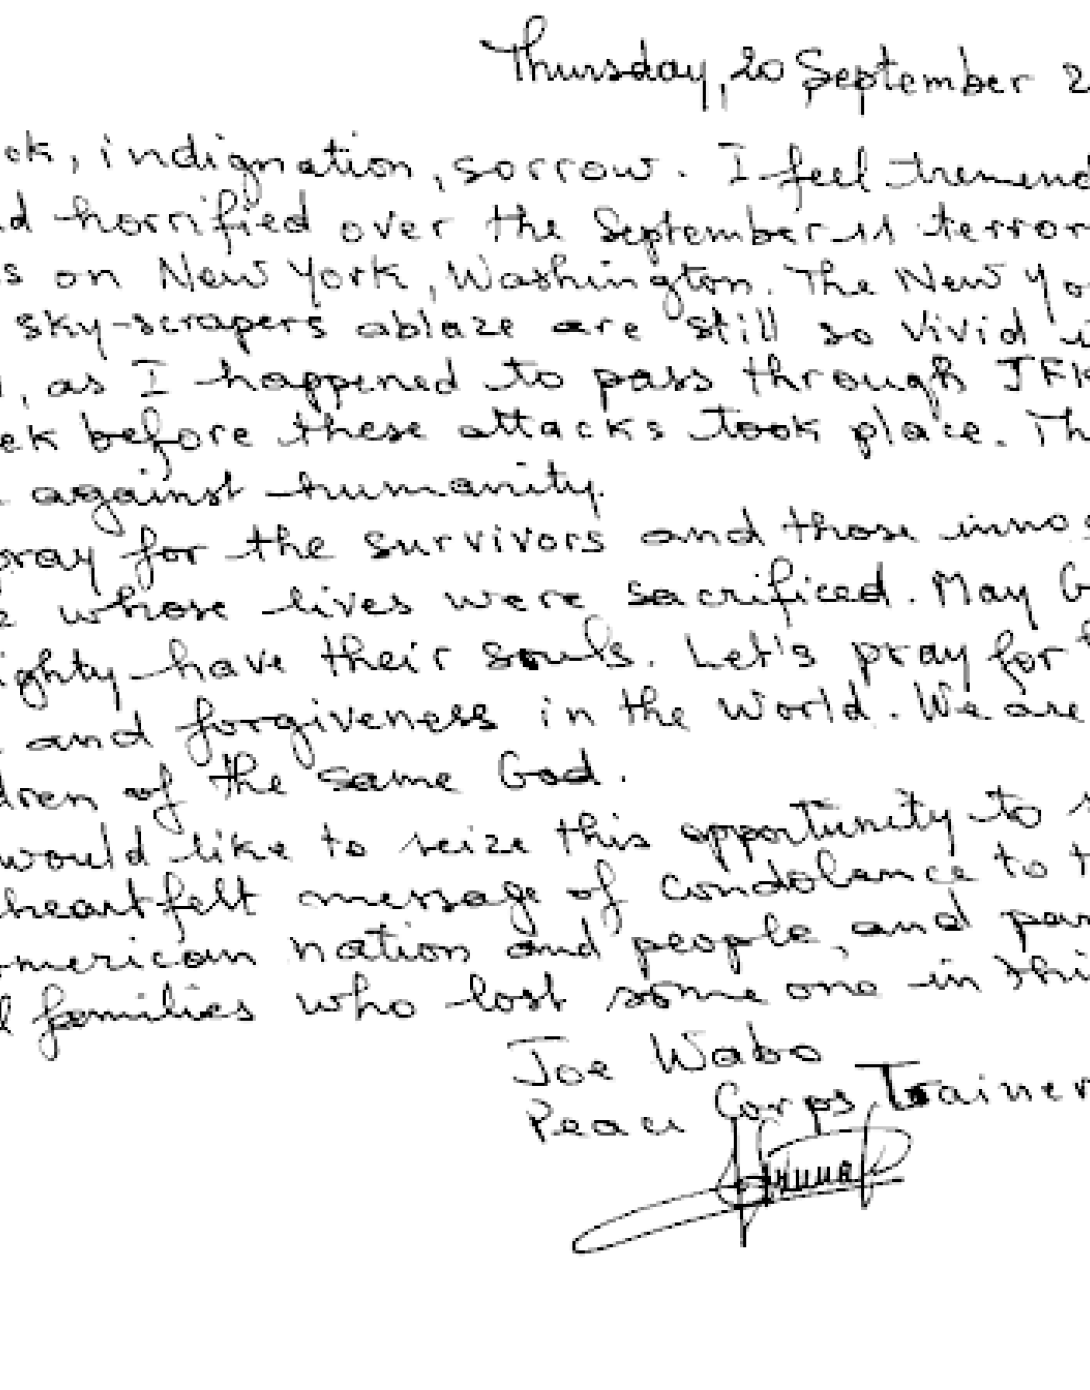 Thursday, 20 September 2
ck, indignation, sorrow. I feel tremend
d horrified over the September 11 terror
s on New York, Washington. The New Yo
sky-scrapers ablaze are still so vivid i
, as I happened to pass through JFK
ek before these attacks took place. Th
against humanity.
pray for the survivors and those inno
whose lives were sacrificed. May G
ighty have their souls. Let's pray for
and forgiveness in the world. We are
dren of the same God.
would like to seize this opportunity to
heartfelt message of condolance to t
merican nation and people, and par
l families who lost some one in thi
Joe Wabo
Peace Corps Trainer